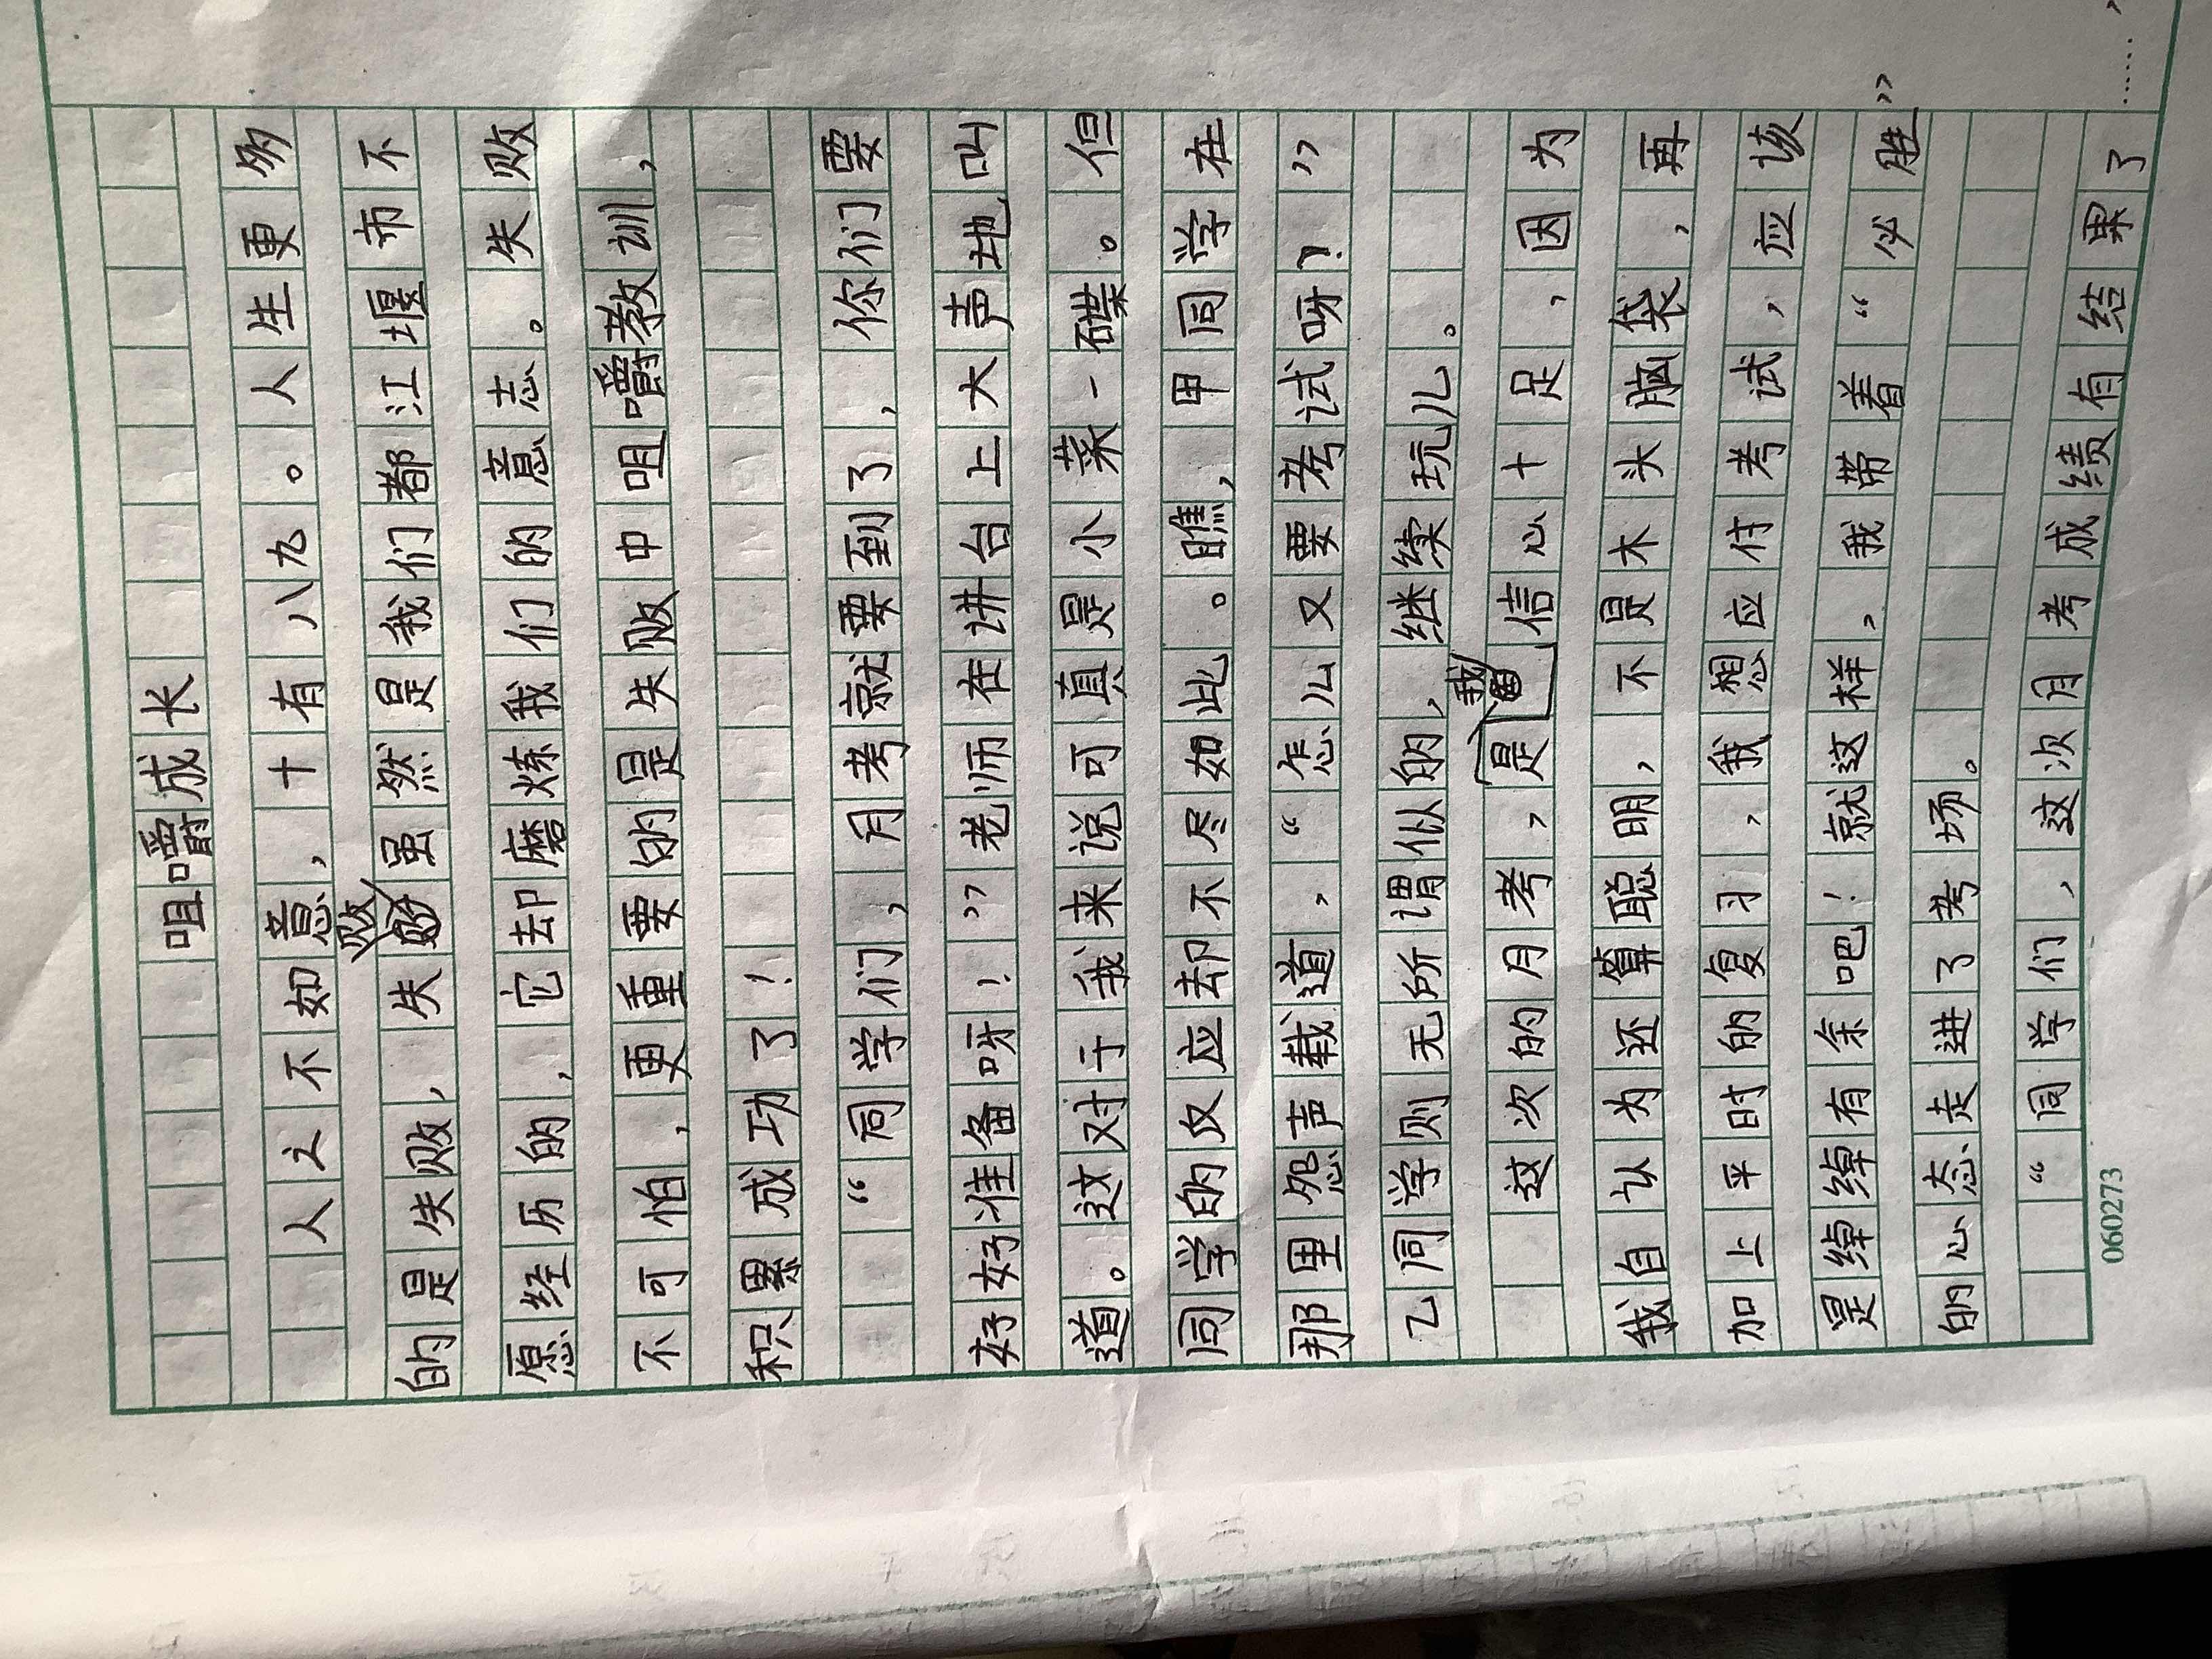 咀嚼成长
人之不如意，十有八九。人生更多
的是失败，失败虽然是我们都江堰市不
愿经历的，它却磨炼我们的意志。失败
不可怕，更重要的是失败中咀嚼教训，
积累成功了！
“同学们，月考就要到了，你们要
好好准备呀！”老师在讲台上大声地叫
道。这对于我来说可真是小菜一碟。但
同学的反应却不尽如此。瞧，甲同学在
那里怨声载道，“怎么又要考试呀？”
乙同学则无所谓似的，继续玩儿。
这次的月考，我是信心十足，因为
我自认为还算聪明，不是木头脑袋，再
加上平时的复习，我想应付考试，应该
是绰绰有余吧！就这样，我带着“必胜”
的心态走进了考场。
“同学们，这次月考成绩有结果了……，
060273